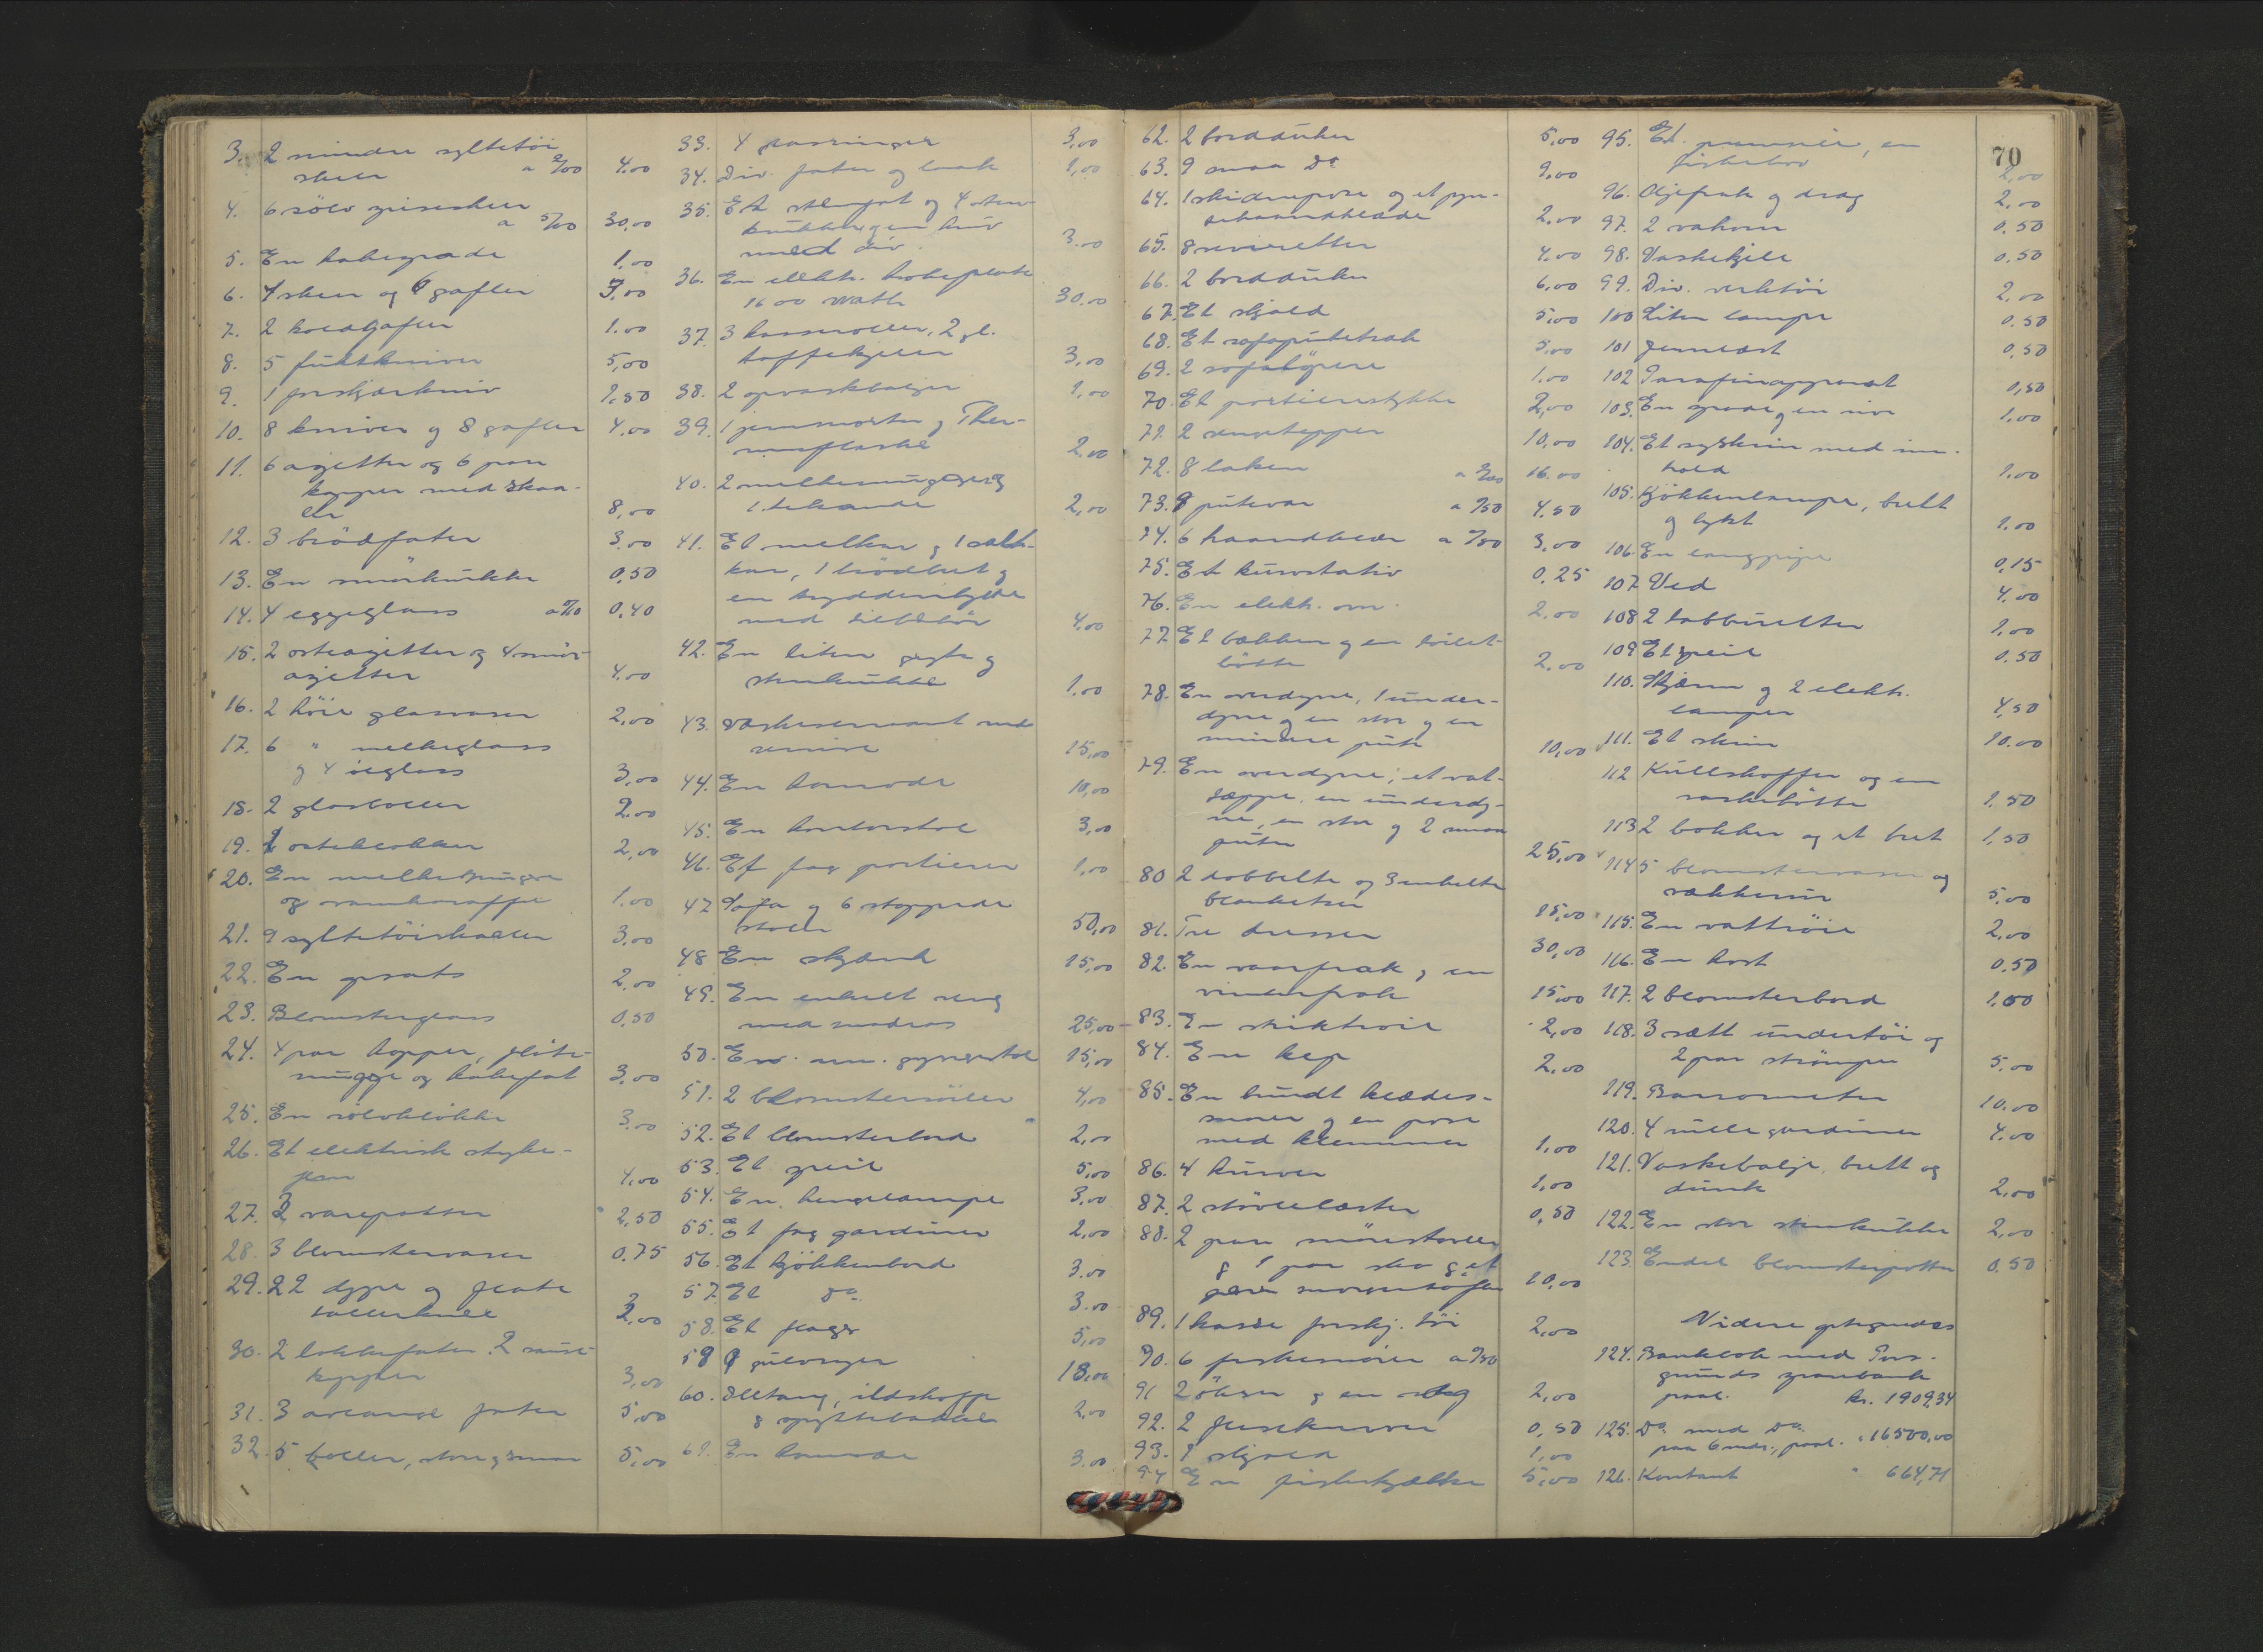 3. 2 mindre syltetöi
skeer a 2/00 4.00
4. 6 sölv spiseskeer
a 5/00 30,00
5. En kakespade 1,00
6. 7 skeer og 6 gafler 3,00
7. 2 koldgafler 1.00
8. 5 fruktkniver 5,00
9. 1 forskjærkniv 1,50
10. 8 kniver og 8 gafler 4,00
11. 6 asjetter og 6 par
kopper med skaa-
ler 8,00
12. 3 brödfater 3.00
13. En smörkrukke 0,50
14. 4 eggeglass a /10 0,40
15. 2 osteasjetter og 4 smör
asjetter 4.00
16. 2 höie glasvaser 2,00
17. 6 " melkeglass
og 4 ölglass 3,00
18. 2 glasboller 2.00
19. 2 osteklokker 2,00
20. En melkemugge
og vannkaraffe 1.00
21. 9 syltetöiskaaler 3,00
22. En opsats 2,00
23. Blomsterglass 0,50
24. 4 par kopper, flöte-
mugge og kakefat 3,00
25. En sölvklokke 3,00
26. Et elektrisk stryke-
jern 4,00
27. 3 vasepotter 2,50
28. 3 blomstervaser 0.75
29. 22 dype og flate
tallerkner 2,00
30. 2 lokkefater. 2 sause-
kopper 3,00
31. 3 avlange fater 5,00
32. 5 boller, store og smaa 5,00
33. 4 3,00
34. Div. fater og 1,00
35. Et stengfat og 4 sten-
krukker og en kurv
med div. 3.00
36. En elektr. kokeplate
1600 watt 30.00
37. 3 kasseroller, 2 gl.
kaffekjeler 3,00
38. 2 opvaskbaljer 1,00
39. 1 og Ther-
mosflaske 2,00
40. 2 melkemugger og
1 tekande 2,00
41. Et melkar og 1 salt-
kar, 1 brödbret og
en krydderihylde
med tilbehör 4,00
42. En liten og
stenkrukke 1.00
43. Vaskeservant med
servise 15,00
44. En komode 10,00
45. En kontorstol 3,00
46. Et fag portierer 1,00
47. Sofa og 6 stoppede
stoler 50,00
48. En skjænk 15,00
49. En enkelt seng
med madras 25,00
50. En gyngestol 15,00
51. 2 blomstersöiler 4,00
52. Et blomsterbord 2,00
53. Et speil 5,00
54. En hengelampe 3,00
55. Et fag gardiner 2,00
56. Et kjökkenbord 3.00
57. Et do. 3.00
58. Et flagg 5,00
59. 9 gulvryer 18,00
60. Ildtang, ildskuffe
og spyttebakke 2,00
61. En komode 3.00
62. 2 bordduker 5,00
63. 9 smaa do 9,00
64. 1 skidenpose og et pyn-
tehaandklæde 2.00
65. 8 servietter 4.00
66. 2 bordduker 6,00
67. Et skjold 5,00
68. Et sofaputetrek 5,00
69. 2 sofalöpere 1.00
70. Et portierestykke 2,00
71. 2 sengetepper 10,00
72. 8 laken a 2/00 16.00
73. 9 putevar a /50 4.50
74. 6 haandklær a /50 3,00
75. Et kurvstativ 0,25
76. En elektr. ovn. 2.00
77. Et bækken og en toilet-
bötte 2.00
78. En overdyne, 1 under-
dyne og en stor og en
mindre pute 10,00
79. En overdyne, et vat-
tæppe, en underdy-
ne, en stor og 2 smaa
puter 25,00
80. 2 dobbelte og 3 enkelte
blanketter 15,00
81. Tre dresser 30,00
82. En vaarfrak, en
vinterfrak 15,00
83. En 2,00
84. En kep 2,00
85. En bundt klædes-
snorer og en pose
med klemmer 1,00
86. 4 kurver 1,00
87. 2 störvelæster 0,50
88. 2 par
og 1 par sko og et
par morgentöfler 10,00
89. 1 kasse forskj. töi 2,00
90. 6 fiskesnörer a /50
91. 2 økser og en sag 2,00
92. 2 0,50
93. 1 skjold 1,00
94. En fiskekjække 5,00
95. Et , en
2,00
96. Oljefrak og drag 2,00
97. 2 0,50
98. Vaskekjele 0.50
99. Div. verktöi 2,00
100. Liten lampe 0.50
101. 0,50
102. Parafinapparat 0,50
103. En spade og en rive 1.00
104. Et syskrin med inn-
hold 1.00
105. Kjökkenlampe, brett
og lykt 1.00
106. En langpipe 0,15
107. Ved 4.00
108. 2 tabburetter 1,00
109. Et speil 0.50
110. Skjerm og 2 elektr.
lamper 4,50
111. Et skrin 10.00
112. Kullskuffer og en
vaskebötte 1.50
113. 2 bokker og et bret 1,50
114. 5 blomstervaser og
vækkerur 5.00
115. En vattröie 2.00
116. En kost 0.50
117. 2 blomsterbord 1,00
118. 3 sætt undertöi og
2 par strömper 5.00
119. Barrometer 10.00
120. 4 rullegardiner 4.00
121. Vaskebalje, brett og
dunk 2,00
122. En stor stenkrukke 2,00
123. Endel blomsterpotter 0.50
70
Videre optegnedes
124. Bankbok med Pors-
grunds sparebank
paal. kr. 1909,34
125. Do. med do.
paa 6 mdr., paal. " 16500,00
126. Kontant " 664,71